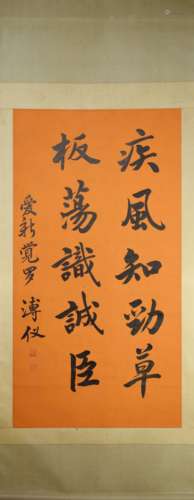 疾風知勁草
板蕩識誠臣
愛新覚罗 溥仪